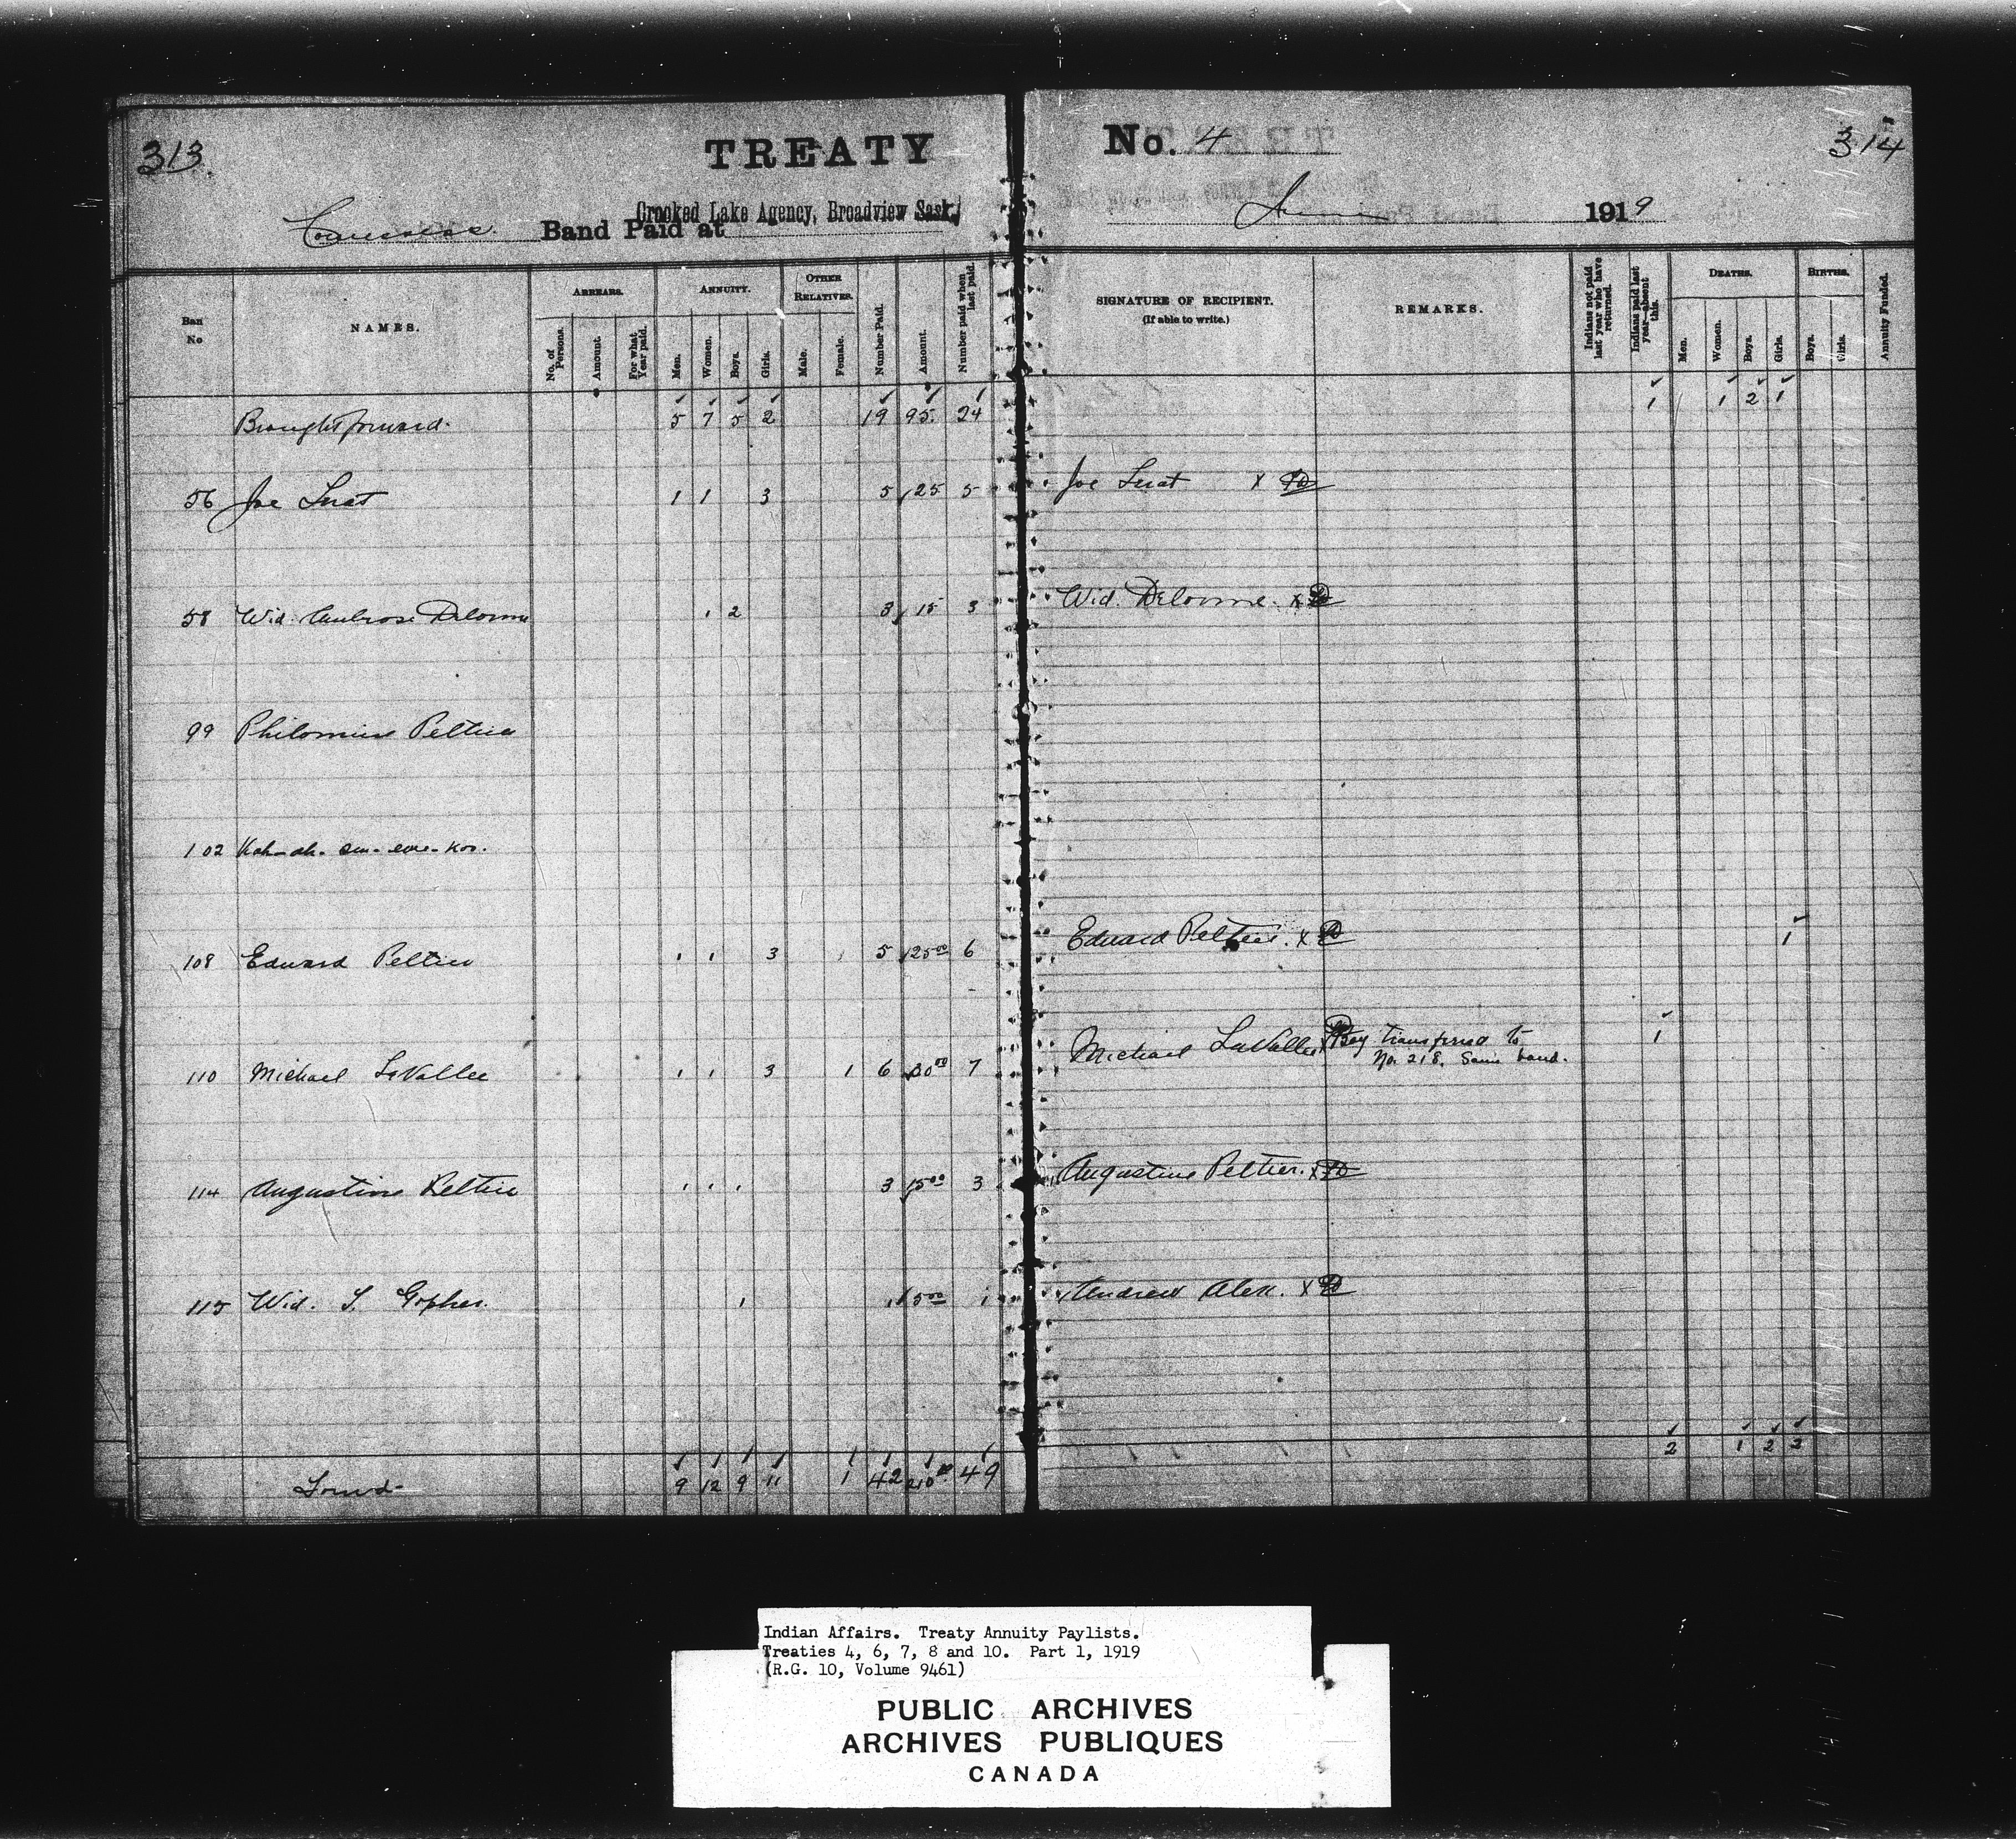 313.
TREATY
No. 4
314
Cowessess Band Paid at Crooked Lake Agency, Broadview Sask.
June 1919
Ban No
NAMES.
ARREARS.
No. of Persons.
Amount.
For what Year paid.
ANNUITY.
Men.
Women.
Boys.
Girls.
OTHER RELATIVES.
Male.
Female.
Number Paid.
Amount.
Number paid when last paid.
SIGNATURE OF RECIPIENT.
(If able to write.)
REMARKS.
Indians not paid last year who have returned.
Indians paid last year—absent this.
DEATHS.
Men.
Women.
Boys.
Girls.
BIRTHS.
Boys.
Girls.
Annuity Funded.
Brought forward. 5 7 5 2 19 95. 24 1 1 2 1
56 Joe 1 1 3 5 25 5 Joe X
58 Wid. Ambrose Delorme 1 2 3 15 3 Wid. Delorme. X
99 Peltier
102
109 Edward Peltier 1 1 3 5 25 00 6 Edward Peltier. X 1
110 Michael LaVallee 1 1 3 1 6 30 00 7 Michael LaVallee Boy transferred to 1
No. 218. Same band.
114 Augustine Peltier 1 1 1 3 15 00 3 Augustine Peltier. X
115 Wid. S. Gopher. 1 1 5 00 1 Andrew Alex. X
Forwd 9 12 9 11 1 42 210 00 49 2 1 2 2
Indian Affairs. Treaty Annuity Paylists.
Treaties 4, 6, 7, 8 and 10. Part 1, 1919
(R.G. 10, Volume 9461)
PUBLIC ARCHIVES
ARCHIVES PUBLIQUES
CANADA